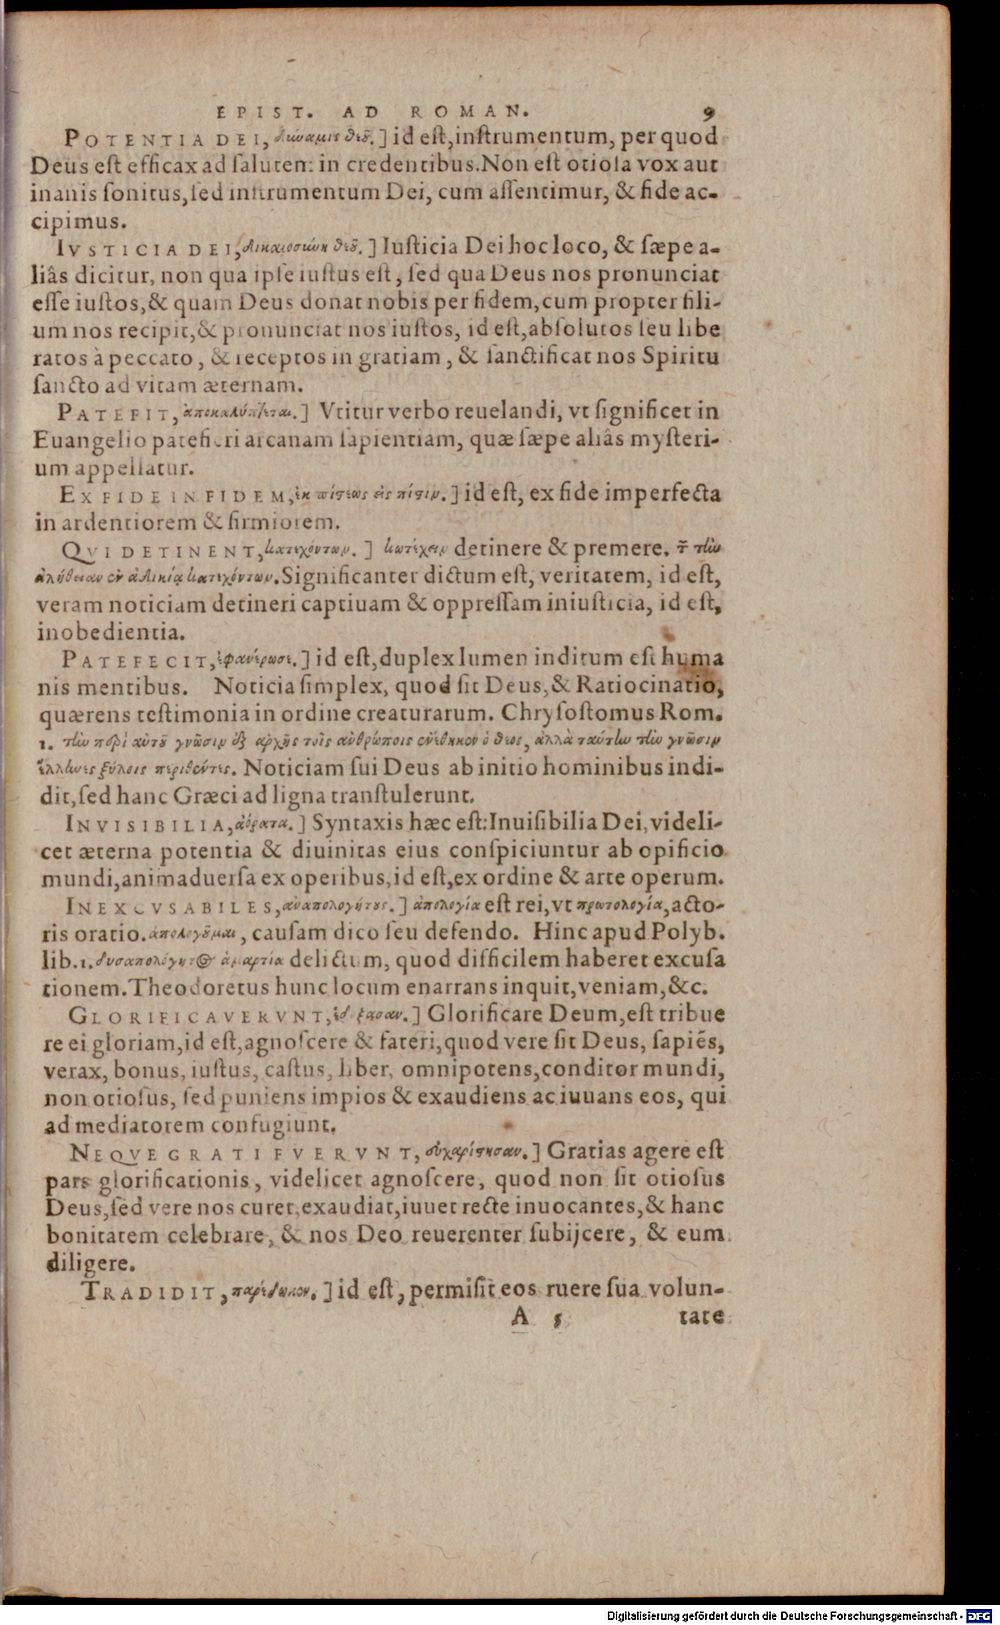 EPIST. AD ROMAN. 9
POTENTIA DEI, δύναμις θεοῦ.] id eſt, inſtrumentum, per quod
Deus eſt efficax ad ſalutem in credentibus. Non eſt otioſa vox aut
inanis ſonitus, ſed inſtrumentum Dei, cum aſſentimur, & fide ac-
cipimus.
IVSTICIA DEI, δικαιοσύνη θεοῦ.] Iuſticia Dei hoc loco, & ſæpe a-
liâs dicitur, non qua ipſe iuſtus eſt, ſed qua Deus nos pronunciat
eſſe iuſtos, & quam Deus donat nobis per fidem, cum propter fili-
um nos recipit, & pronunciat nos iuſtos, id eſt, abſolutos ſeu libe
ratos à peccato, & receptos in gratiam, & ſanctificat nos Spiritu
ſancto ad vitam æternam.
PATEFIT, ἀποκαλύπτεται.] Vtitur verbo reuelandi, vt ſignificet in
Euangelio patefieri arcanam ſapientiam, quæ ſæpe aliâs myſteri-
um appellatur.
EX FIDE IN FIDEM, ἐκ πίστεως εἰς πίστιν.] id eſt, ex fide imperfecta
in ardentiorem & firmiorem.
QVI DETINENT, κατεχόντων.] κατέχειν detinere & premere. τ̄ τὴν
ἀλήθειαν ἐν ἀδικίᾳ κατεχόντων. Significanter dictum eſt, veritatem, id eſt,
veram noticiam detineri captiuam & oppreſſam iniuſticia, id eſt,
inobedientia.
PATEFECIT, ἐφανέρωσε.] id eſt, duplex lumen inditum eſt huma
nis mentibus. Noticia ſimplex, quod ſit Deus, & Ratiocinatio,
quærens teſtimonia in ordine creaturarum. Chryſoſtomus Rom.
1. τὴν περὶ αὐτοῦ γνῶσιν ἐξ ἀρχῆς τοῖς ἀνθρώποις ἐνέθηκεν ὁ θεὸς, ἀλλὰ ταύτην τὴν γνῶσιν
ἕλληνες ξύλοις περιθέντες. Noticiam ſui Deus ab initio hominibus indi-
dit, ſed hanc Græci ad ligna tranſtulerunt.
INVISIBILIA, ἀόρατα.] Syntaxis hæc eſt: Inuiſibilia Dei, videli-
cet æterna potentia & diuinitas eius conſpiciuntur ab opificio
mundi, animaduerſa ex operibus, id eſt, ex ordine & arte operum.
INEXCVSABILES, ἀναπολογήτους.] ἀπολογία eſt rei, vt πρωτολογία, acto-
ris oratio. ἀπολογοῦμαι, cauſam dico ſeu defendo. Hinc apud Polyb.
lib. 1. δυσαπολόγητος ἁμαρτία delictum, quod difficilem haberet excuſa
tionem. Theodoretus hunc locum enarrans inquit, veniam, &c.
GLORIFICAVERVNT, ἐδόξασαν.] Glorificare Deum, eſt tribue
re ei gloriam, id eſt, agnoſcere & fateri, quod vere ſit Deus, ſapiẽs,
verax, bonus, iuſtus, caſtus, liber, omnipotens, conditor mundi,
non otioſus, ſed puniens impios & exaudiens ac iuuans eos, qui
ad mediatorem confugiunt.
NEQVE GRATI FVERVNT, εὐχαρίστησαν.] Gratias agere eſt
pars glorificationis, videlicet agnoſcere, quod non ſit otioſus
Deus, ſed vere nos curet, exaudiat, iuuet recte inuocantes, & hanc
bonitatem celebrare, & nos Deo reuerenter ſubijcere, & eum
diligere.
TRADIDIT, παρέδωκεν.] id eſt, permiſit eos ruere ſua volun-
A 5 tate
Digitalisierung gefördert durch die Deutsche Forschungsgemeinschaft - DFG